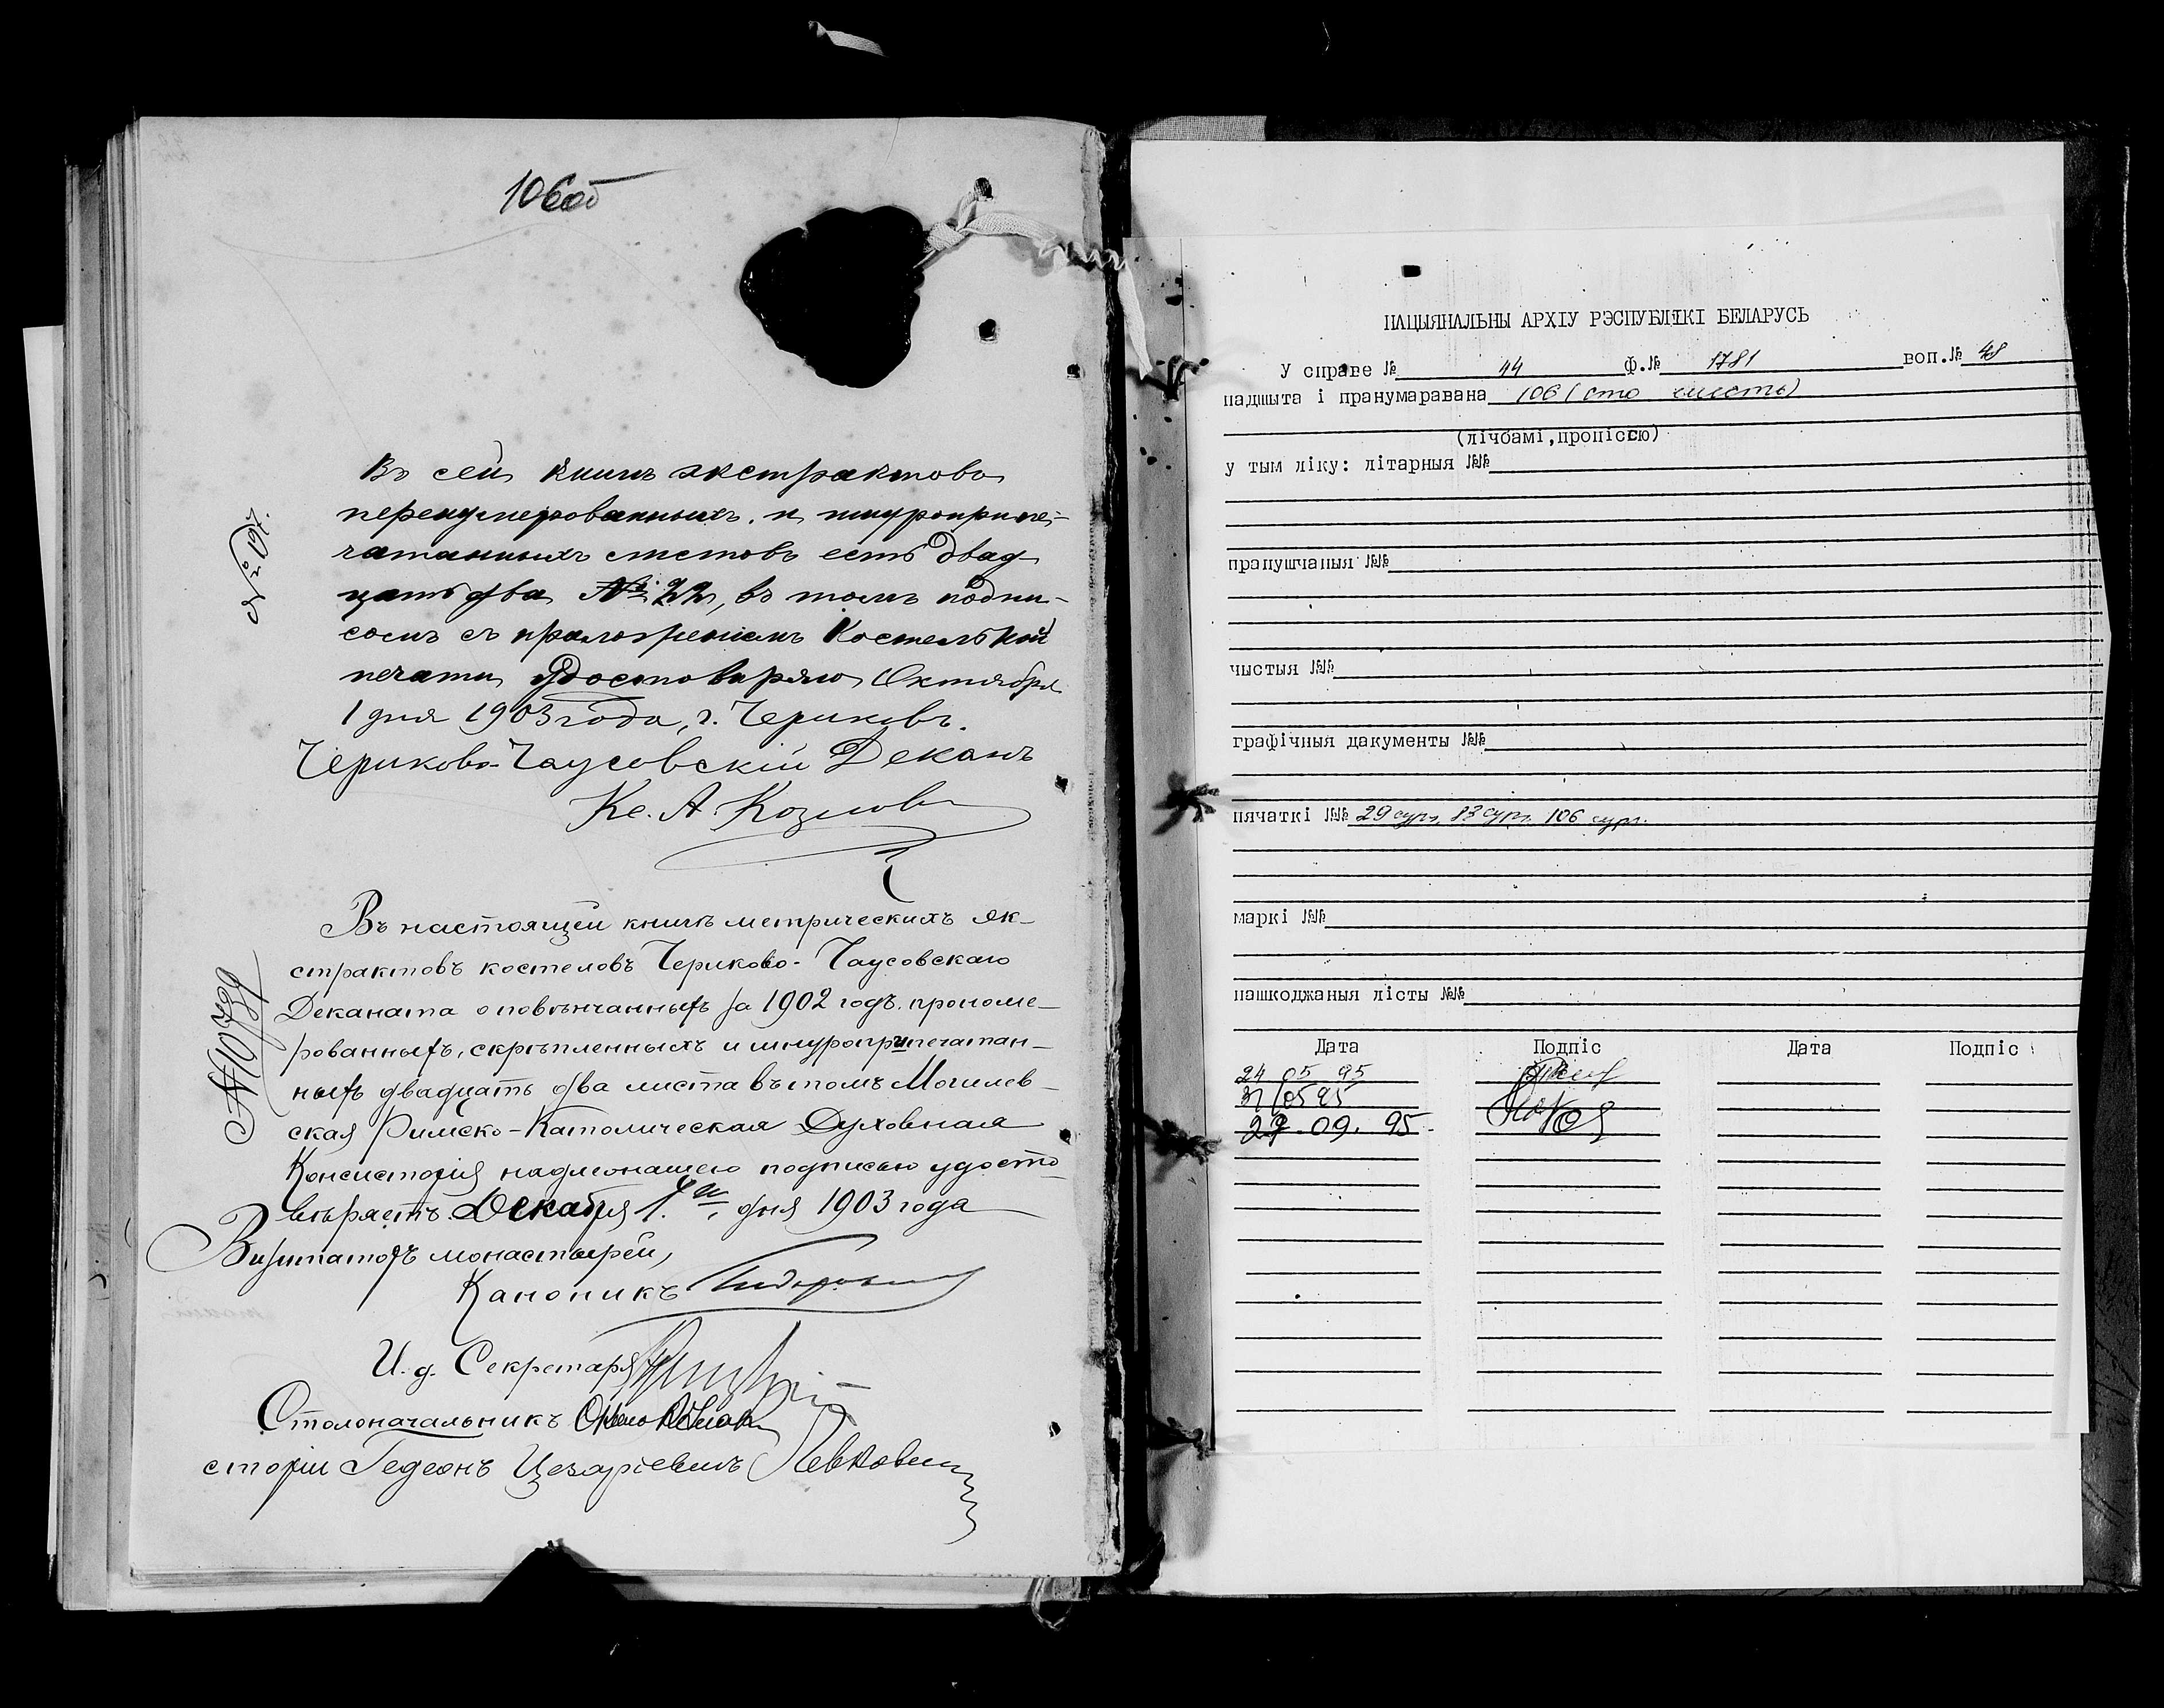 106об
Въ сей книгѣ экстрактовъ
перенумерованныхъ и шнуроприпе-
чатанныхъ листовъ есть двад-
цать два № 22, въ томъ подпи-
сомъ съ приложеніемъ Костельной
печати удостовѣряю Октября
1 дня 1903 года, г. Чериковъ.
Чериково-Чаусовскій Деканъ
Кс. А. Козлов
№ 197.
Въ настоящей книгѣ метрическихъ эк-
страктовъ костеловъ Чериково-Чаусовскаго
Деканата о повѣнчанныхъ за 1902 годъ, прономе-
рованныхъ, скрѣпленныхъ и шнуроприпечатан-
ныхъ двадцать два листа въ томъ Могилев-
ская Римско-Католическая Духовная
Консисторія надлежащею подписью удосто-
вѣряетъ. Декабря 1 дня 1903 года
№ 10739
Визитаторъ монастырей,
Каноникъ
И. д. Секретаря
Столоначальникъ
сторіи Гедеонъ Цезаріевичъ Левкович
НАЦЫЯНАЛЬНЫ АРХІУ РЭСПУБЛІКІ БЕЛАРУСЬ
У справе № 44 ф.№ 1781 воп.№ 48
падшыта і пранумаравана 106 (сто шесть)
(лічбамі,пропіссю)
у тым ліку: літарныя №№
прапушчаныя №№
чыстыя №№
графічныя дакументы №№
пячаткі №№ 29 сург. 83 сург. 106 сург.
маркі №№
пашкоджаныя лісты №№
Дата Подпіс Дата Подпіс
24 05 95
31 05 95
29.09.95